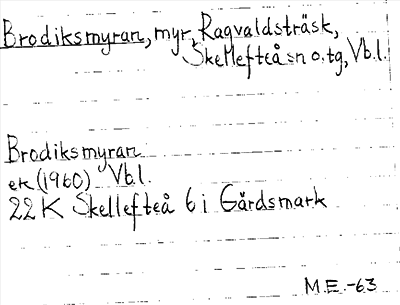 Brodiksmyran, myr, Ragvaldsträsk,
Skellefteå sn o. tg, Vb.l.
Brodiksmyran
ek (1960) Vb.l.
22 K Skellefteå 6 i Gårdsmark
M.E.-63